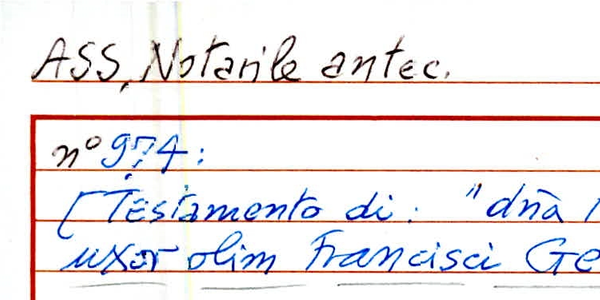 ASS, Notarile antec.
n° 974:
[Testamento di: "dña
uxor olim Francisci Ge